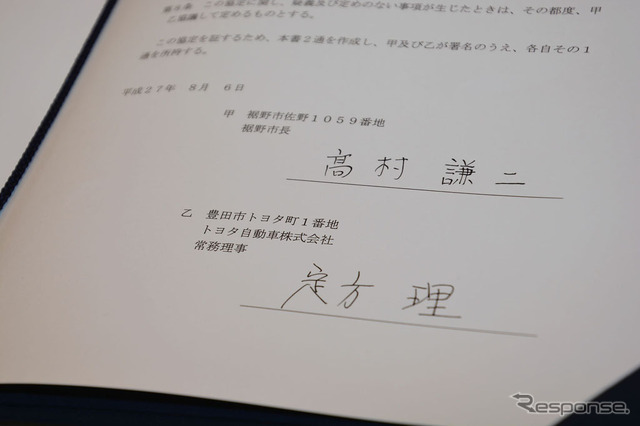 第５条　この協定に関し、疑義及び定めのない事項が生じたときは、その都度、甲
乙協議して定めるものとする。
この協定を証するため、本書２通を作成し、甲及び乙が署名のうえ、各自その１
通を所持する。
平成２７年　８月　６日
甲　裾野市佐野１０５９番地
裾野市長
髙村　謙二
乙　豊田市トヨタ町１番地
トヨタ自動車株式会社
常務理事
定方　理
Response.